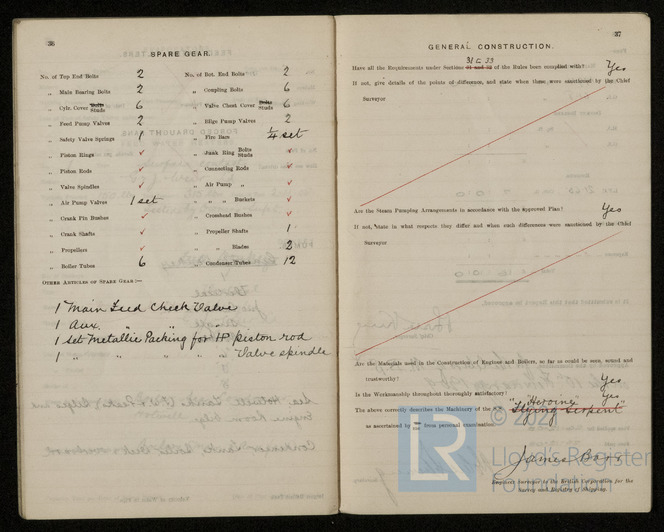 36
SPARE GEAR.
No. of Top End Bolts 2
No. of Bot. End Bolts 2
„ Main Bearing Bolts 2
„ Coupling Bolts 6
„ Cylr. Cover Bolts Studs 6
„ Valve Chest Cover Bolts Studs 6
„ Feed Pump Valves 2
„ Bilge Pump Valves 2
„ Safety Valve Springs 1
„ Fire Bars 1/4 set
„ Piston Rings ✓
„ Junk Ring Bolts Studs ✓
„ Piston Rods ✓
„ Connecting Rods ✓
„ Valve Spindles ✓
„ Air Pump „ ✓
„ Air Pump Valves 1 set
„ „ Buckets ✓
„ Crank Pin Bushes ✓
„ Crosshead Bushes ✓
„ Crank Shafts ✓
„ Propeller Shafts 1
„ Propellers ✓
„ „ Blades 2
„ Boiler Tubes 6
„ Condenser Tubes 12
OTHER ARTICLES OF SPARE GEAR:—
1 Main Feed Check Valve
1 Aux. „ „ „
1 set Metallic Packing for HP piston rod
1 „ „ „ „ Valve spindle
37
GENERAL CONSTRUCTION.
31 & 33
Have all the Requirements under Sections 31 and 32 of the Rules been complied with? Yes
If not, give details of the points of difference, and state when these were sanctioned by the Chief
Surveyor
Are the Steam Pumping Arrangements in accordance with the approved Plan? Yes
If not, state in what respects they differ and when such differences were sanctioned by the Chief
Surveyor
Are the Materials used in the Construction of Engines and Boilers, so far as could be seen, sound and
trustworthy? Yes
Is the Workmanship throughout thoroughly satisfactory? Yes
Heroine
The above correctly describes the Machinery of the S.S. "Flying Serpent"
as ascertained by me from personal examination.
James Barr
Engineer Surveyor to the British Corporation for the
Survey and Registry of Shipping.
LR
Lloyd's Register
Foundation